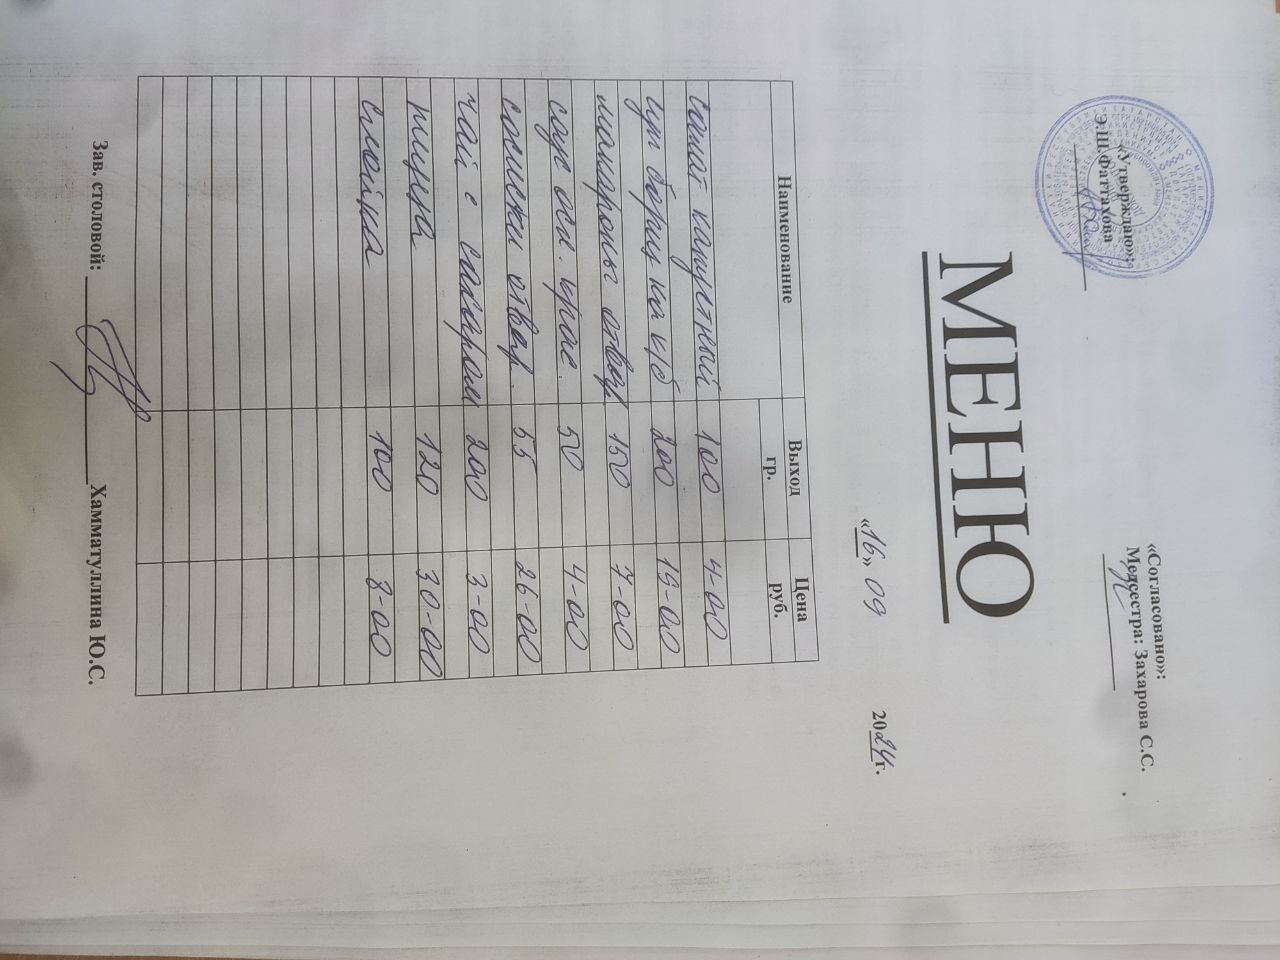 «Утверждаю»:
Э.Ш Фаттахова
«Согласовано»:
Медсестра: Захарова С.С.
МЕНЮ
«16» 09 2024г.
Наименование Выход гр. Цена руб.
Салат капустный 100 4-00
суп борщ на к/б 200 15-00
макароны отвар 150 7-00
соус осн. крас. 50 4-00
сосиски отвар. 55 26-00
чай с сахаром 200 3-00
пицца 120 30-00
слойка 100 8-00
Зав. столовой: Хамматуллина Ю.С.